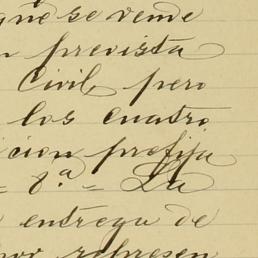 que se vende
n prevista
Civil, pero
los cuatro
icion prefija
= 8.ª = La
entrega de
por represen